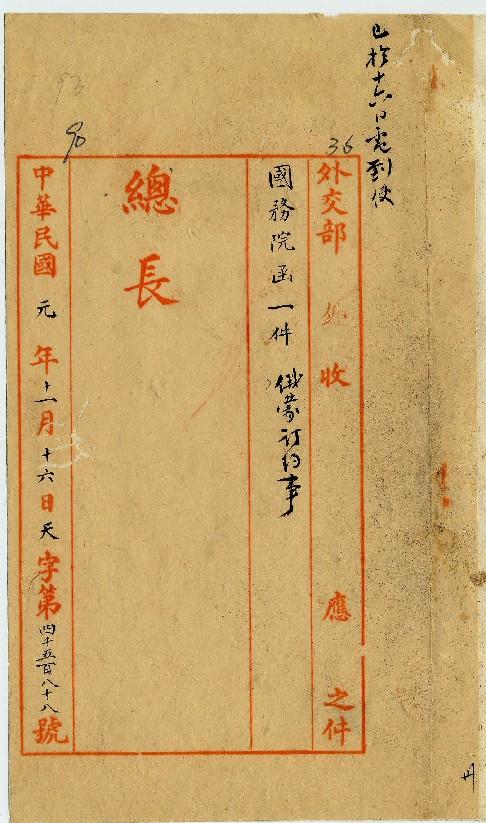 已於十六日電劉使
36
外交部 收 應 之件
國務院函一件 俄蒙訂約事
總長
中華民國元年十一月十六日天字第四千五百八十八號
93
90